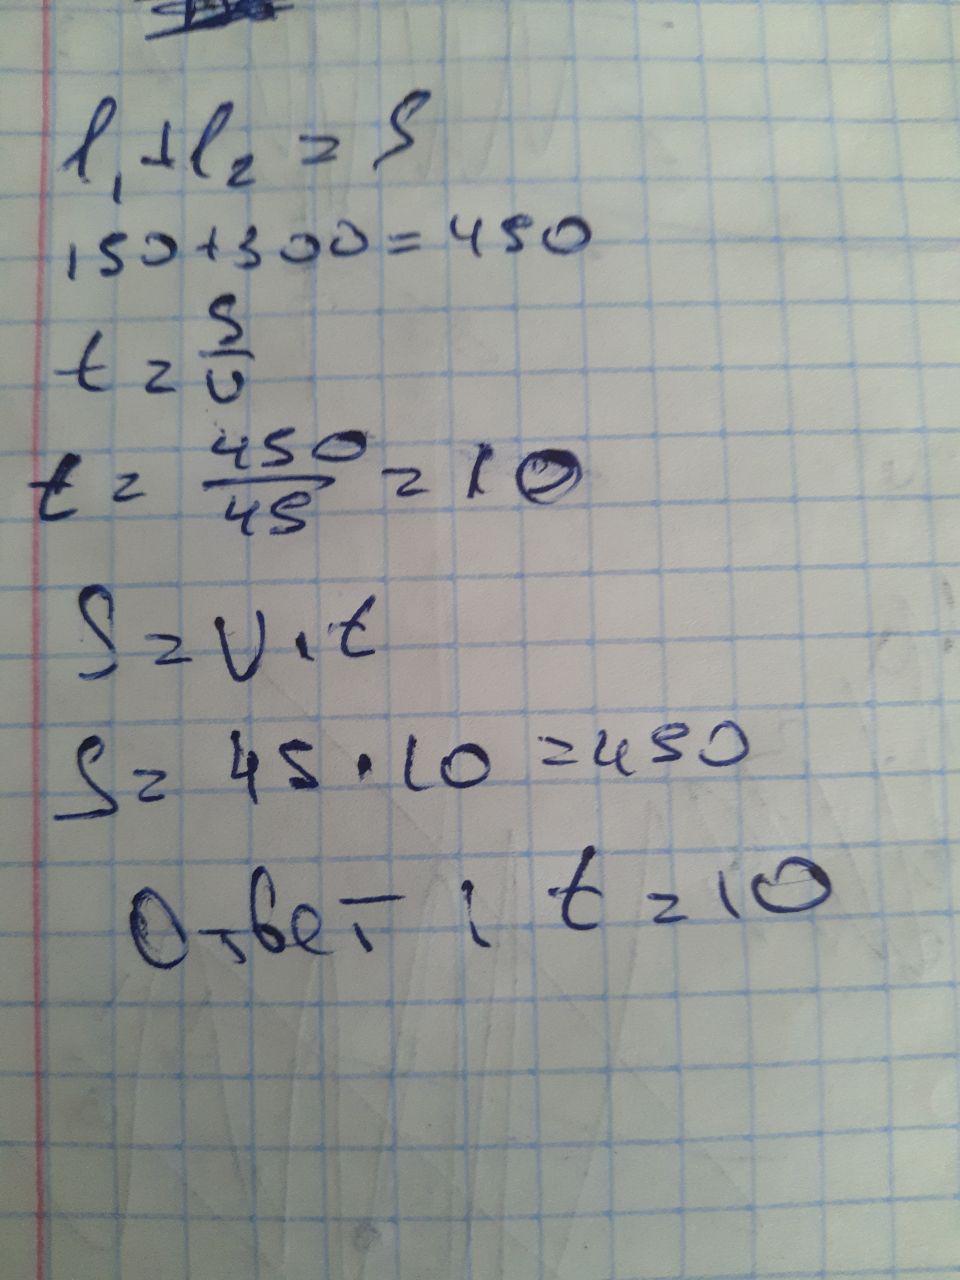 l₁+l₂ = S
150+300=450
t = S/v
t = 450/45 = 10
S = v · t
S = 45 · 10 = 450
Ответ: t = 10